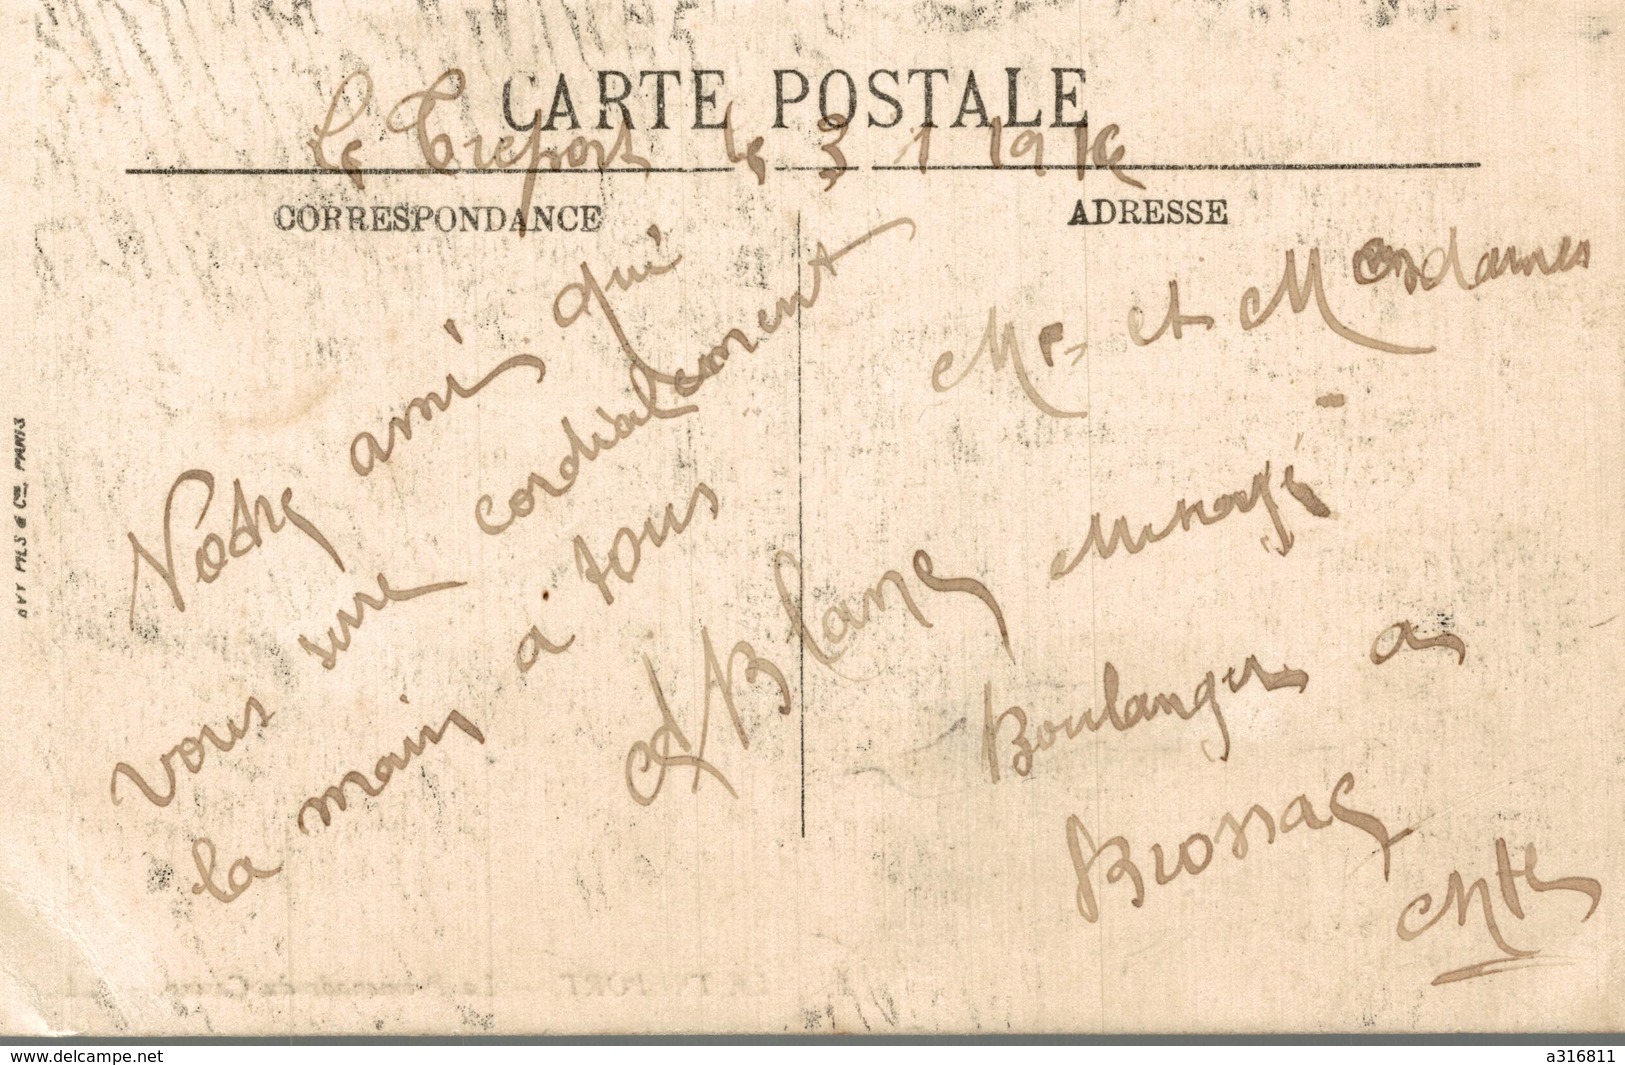 CARTE POSTALE
Le Treport le 3 1 1916
CORRESPONDANCE
Votre ami qui
vous sere cordialement
la main a tous
ABlanc
ADRESSE
Mr et Mesdames
Boulanger a
Brossac
Chte
& Cie PARIS
www.delcampe.net
a316811